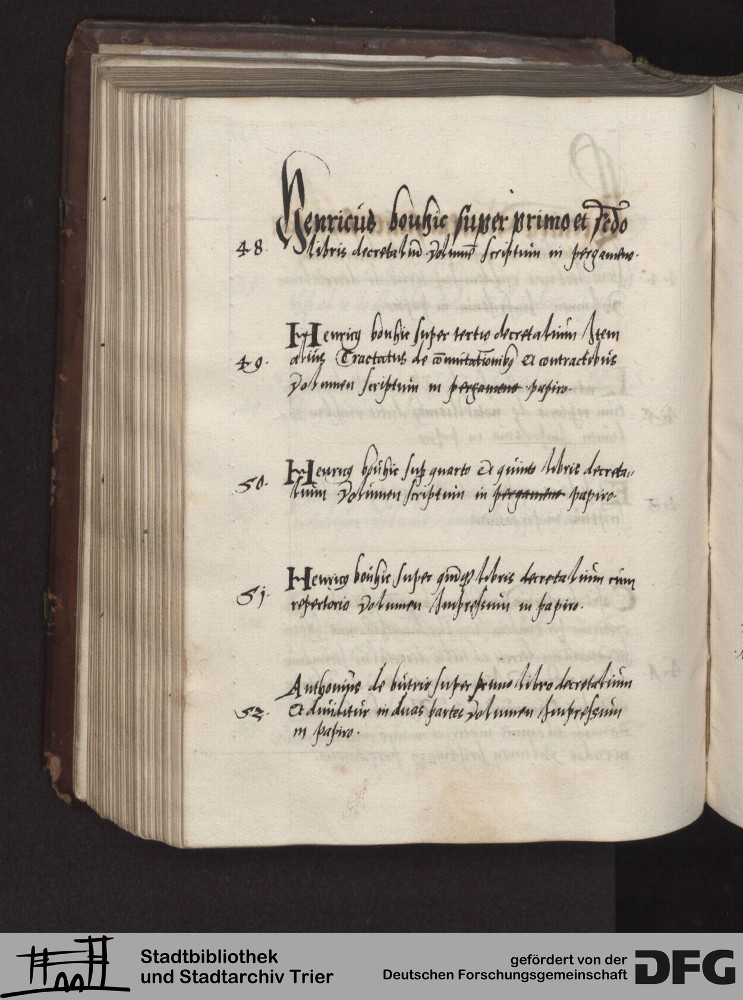 Henricus bouhic super primo et scdo
48 libris decretaliū volumē scriptum in pergameno.
Henricꝰ bouhic super tertio decretalium Item
49. alius Tractatus de et contractibus
volumen scriptum in pergameno papiro.
Henricꝰ bouhic sup quarto et quinto libris decreta-
50. lium volumen scriptum in pergameno papiro.
Henricꝰ bouhic super libris decretalium cum
51. repertorio volumen Impressum in papiro.
Anthonius de butrio super primo libro decretalium
52. Et diuiditur in duas partes volumen Impressum
in papiro.
Stadtbibliothek
und Stadtarchiv Trier
gefördert von der
Deutschen Forschungsgemeinschaft
DFG